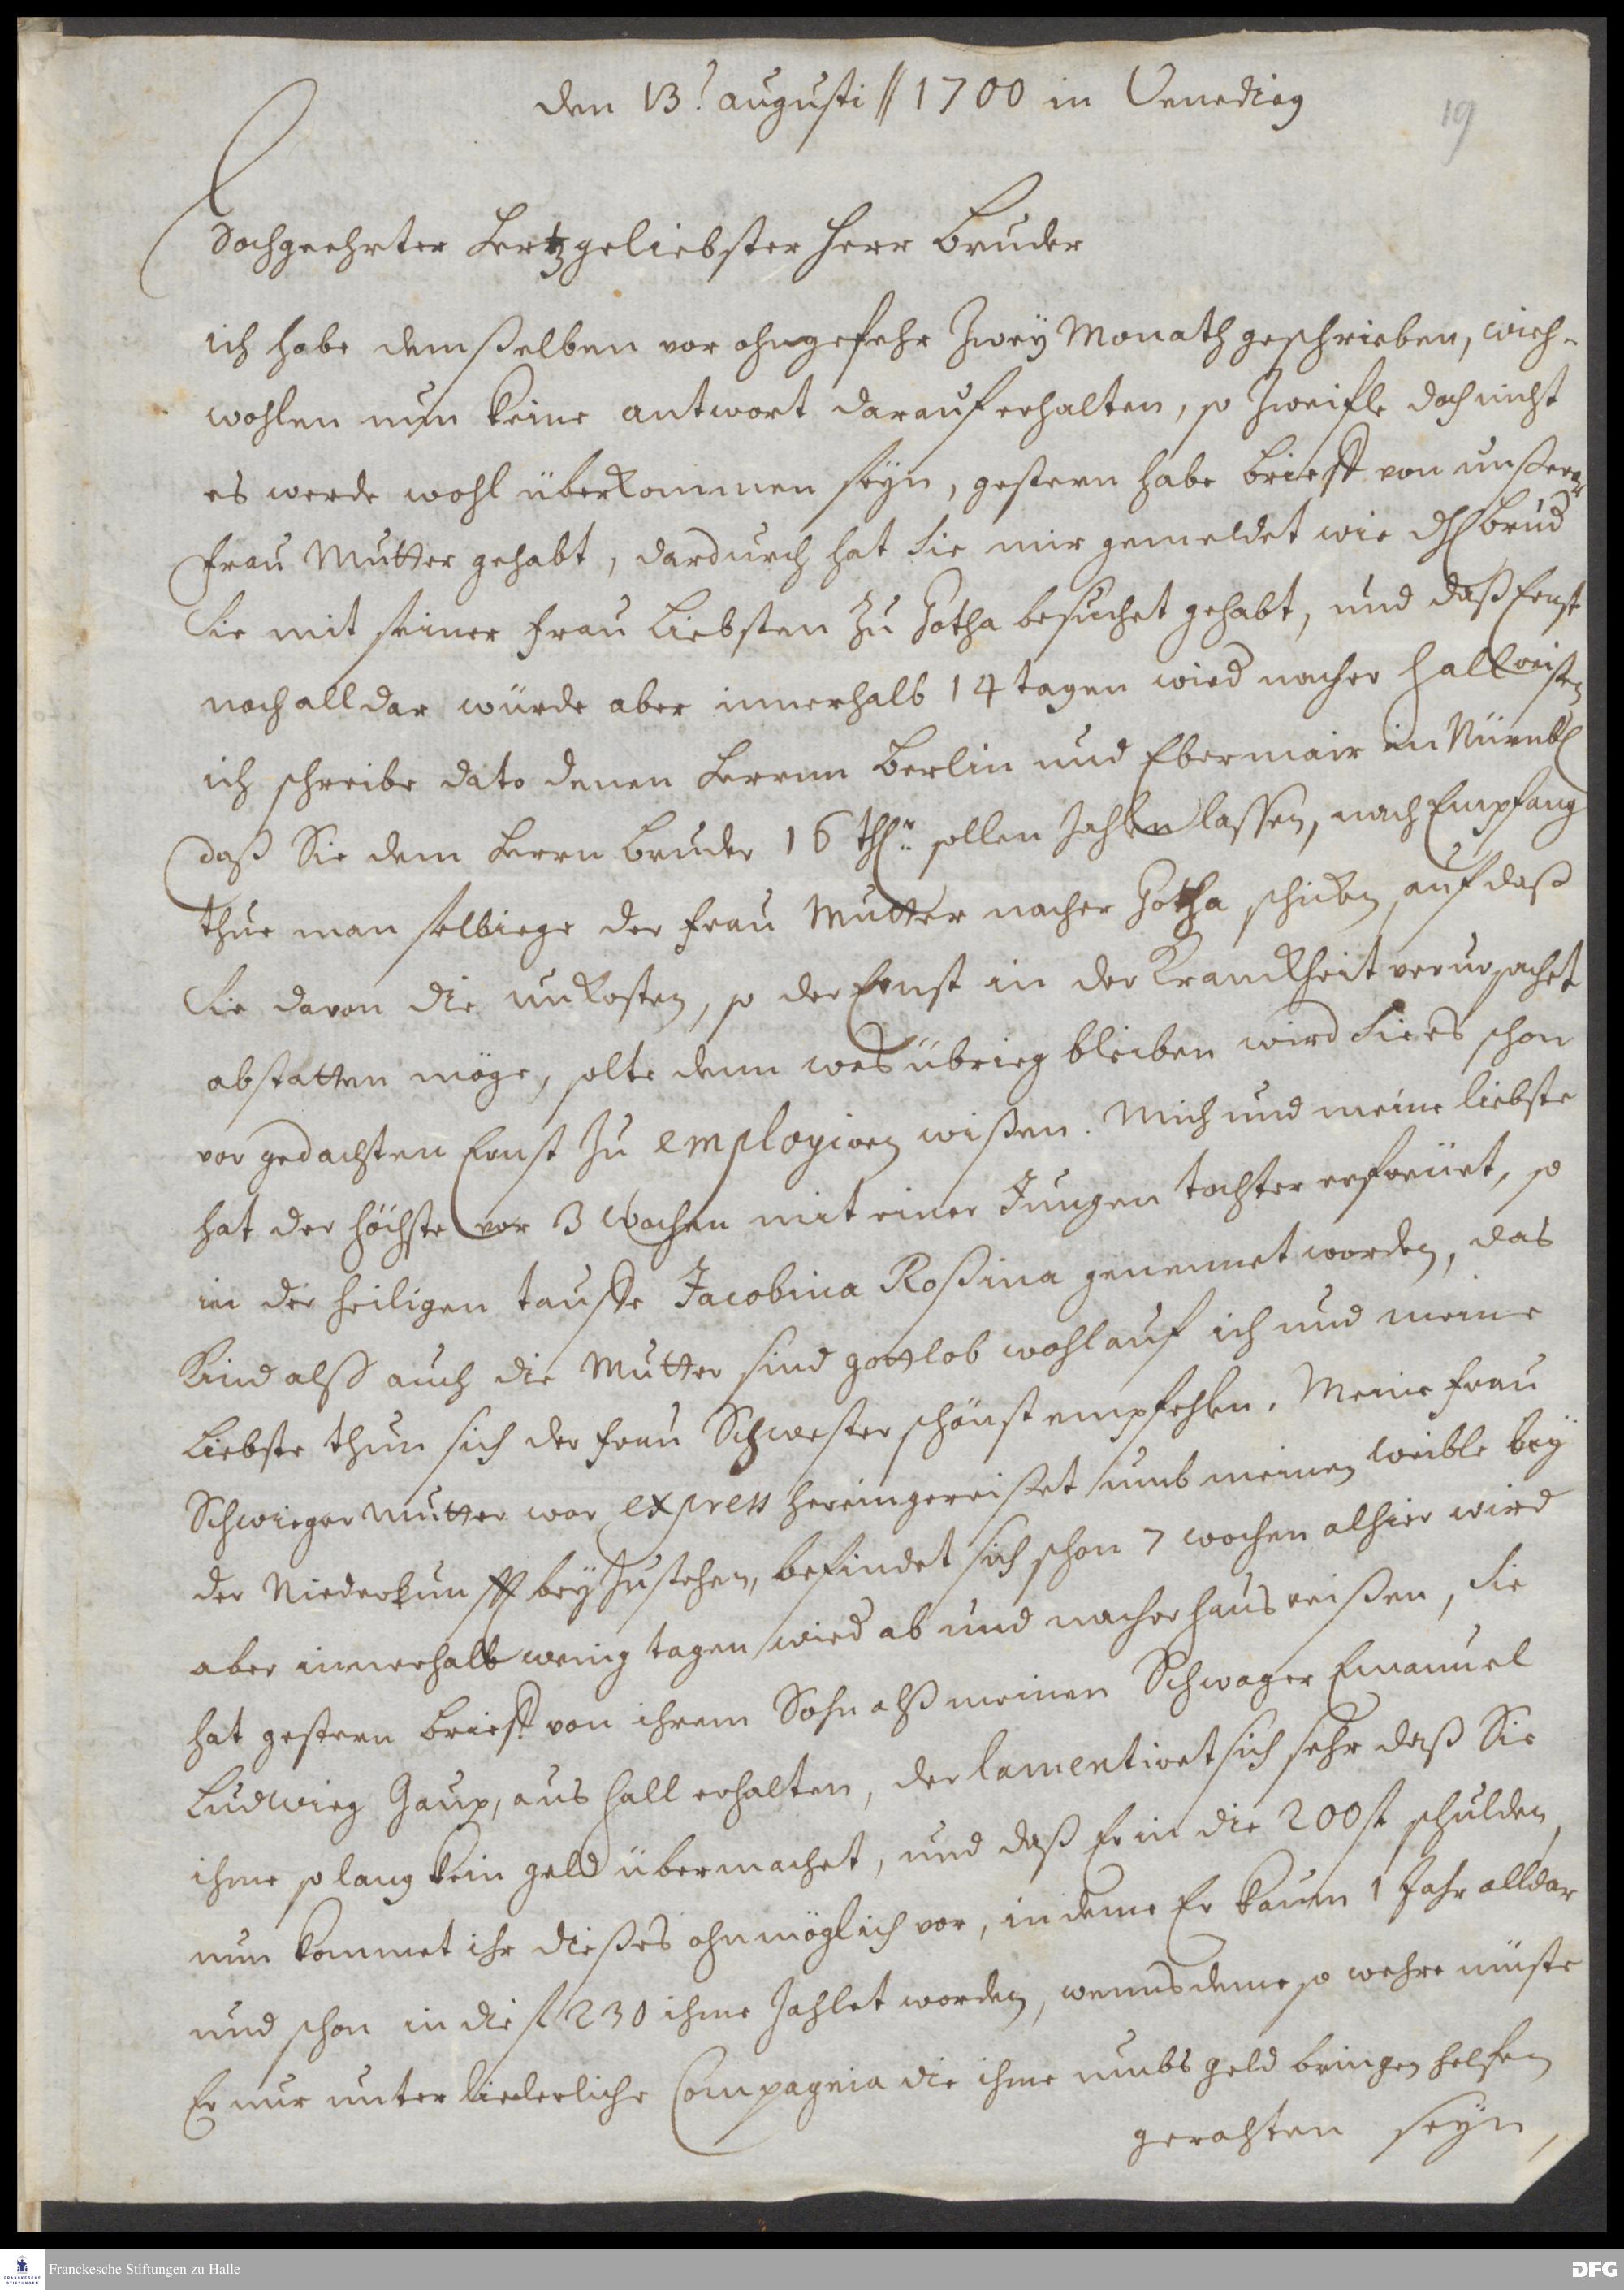 den 13.t augusti // 1700 in Venedieg
19
Hochgeehrter Hertzgeliebster Herr Bruder
ich habe demßelben vor ohngefehr Zwey Monath geschrieben, wieh-
wohlen nun keine antwort darauf erhalten, so Zweifle doch nicht
es werde wohl überkommen seyn, gestern habe brieff von unßerer
Frau Mutter gehabt, dardurch hat sie mir gemeldet wie dH brud
Sie mit seiner Frau Liebsten Zu Gotha besuchet gehabt, und daß Ernst
noch alldar würde aber innerhalb 14 tagen wird nacher Hall reisen
ich schreibe dato denen Herrnn Berlin und Ebermair in Nürnb
daß Sie dem Herrn Bruder 16 thlr sollen Zahlen lassen, nach Empfang
thue man selbiege der Frau Mutter nacher Gotha schicken, auf daß
Sie davon die unkosten, so der Ernst in der Kranckheit verursachet
abstatten möge, solte denn was übrieg bleiben wird Sie es schon
vor gedachten Ernst Zu employiren wißen. Mich und meine liebste
hat der höchste vor 3 Wochen mit einer Jungen tochter erfreüet, so
in der heiligen tauffe Jacobina Roßina genennet worden, das
Kind alß auch die Mutter sind gottlob wohlauf ich und meine
Liebste thun sich der Frau Schwester schönst empfehlen. Meine Frau
Schwieger Mutter war express hereingereißet umb meinen weible bey
der Niederkunfft beyZustehen, befindet sich schon 7 wochen alhier wird
aber innerhalb wenig tagen wird ab und nacher haus reißen, Sie
hat gestern brieff von ihrem Sohn alß meinen Schwager Emanuel
Ludwieg Gaup, aus Hall erhalten, der lamentiret sich sehr daß Sie
ihme so lang kein geld übermachet, und daß Er in die 200 fl schulden,
nun kommet ihr dießes ohnmöglich vor, in deme Er kaum 1 Jahr alldar
und schon in die fl 230 ihme Zahlet worden, wenns deme so wehre müste
Er nur unter liederliche Compagnia die ihme umbs geld bringen helfen
gerahten seyn,
Franckesche Stiftungen zu Halle
FRANCKESCHE STIFTUNGEN
DFG